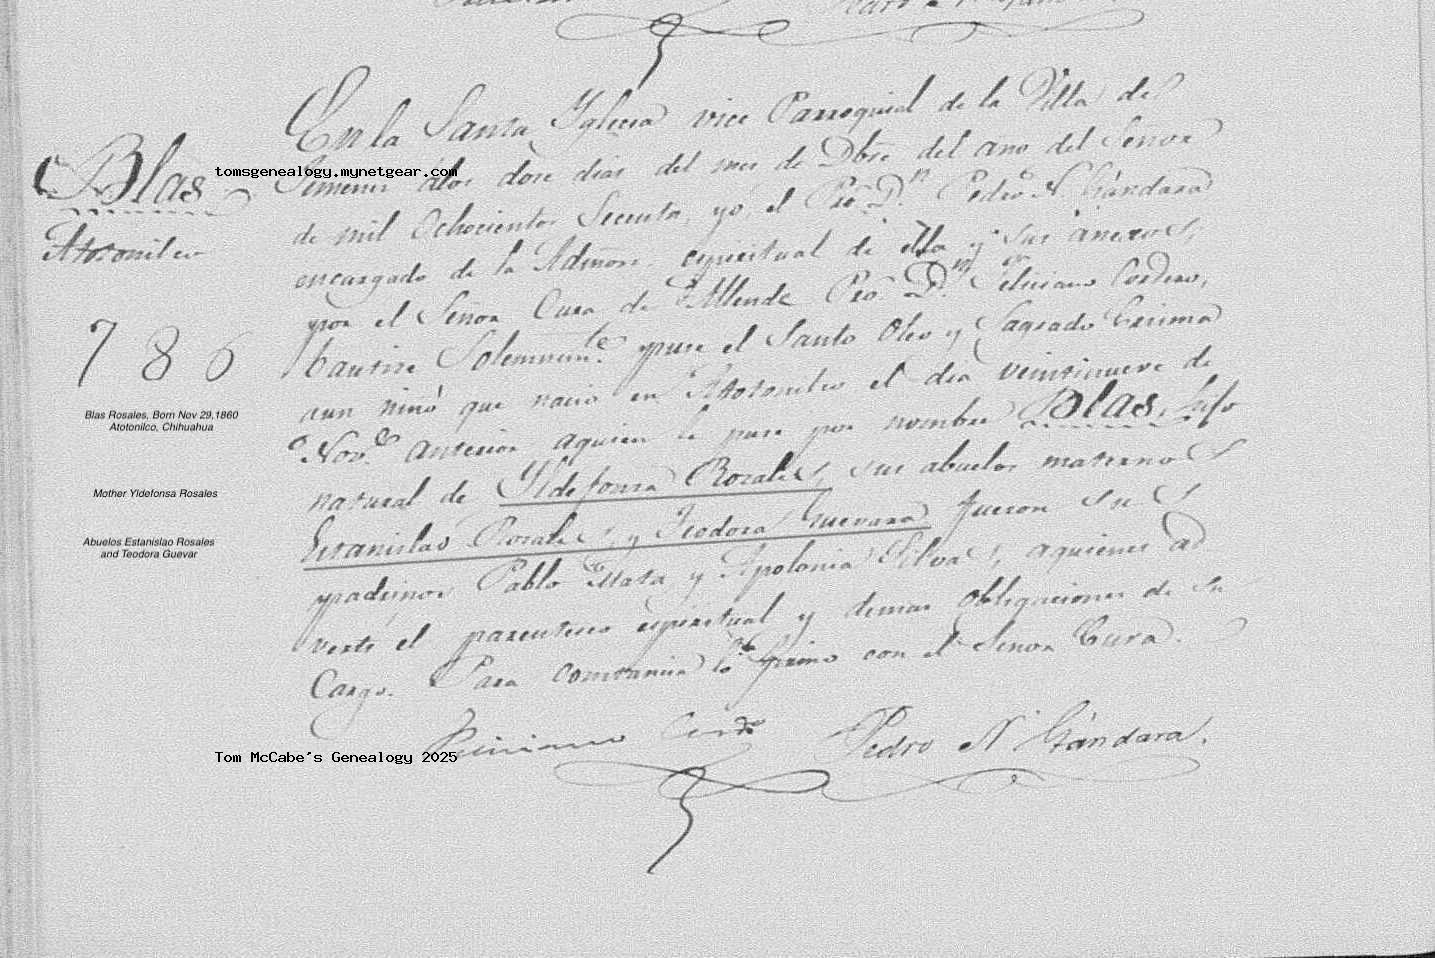 En la Santa Yglecia vice Parroquial de la Villa de
Blas
tomsgenealogy.mynetgear.com
Jimenes á los dose dias del mes de Dbre del ano del Señor
de mil Ochocientos Secenta, yo, el Pro. Dn. Pedro N. Gándara
Atotonilco
encargado de la Admon. espiritual de ella y sus anexos,
por el Señor Cura de Allende Pro. Dn. Feliciano Cordero,
786
bautise Solemnemte. y puse el Santo Oleo y Sagrado Crisma
aun ninó que nacio en Atotonilco el dia veintinueve de
Blas Rosales, Born Nov 29,1860
Atotonilco, Chihuahua
Nove. anterior aquien le puse por nombre Blas, hijo
natural de Yldefonsa Rosales, sus abuelos maternos
Mother Yldefonsa Rosales
Estanislao Rosales, y Teodora Guevara fueron sus
Abuelos Estanislao Rosales
and Teodora Guevar
padrinos Pablo Mata y Apolonia Silva, aquienes ad
verti el parentesco espiritual y demas obligaciones de su
Cargo. Para constancia lo firmo con el Señor Cura.
Feliciano Cordo Pedro N Gándara.
Tom McCabe's Genealogy 2025